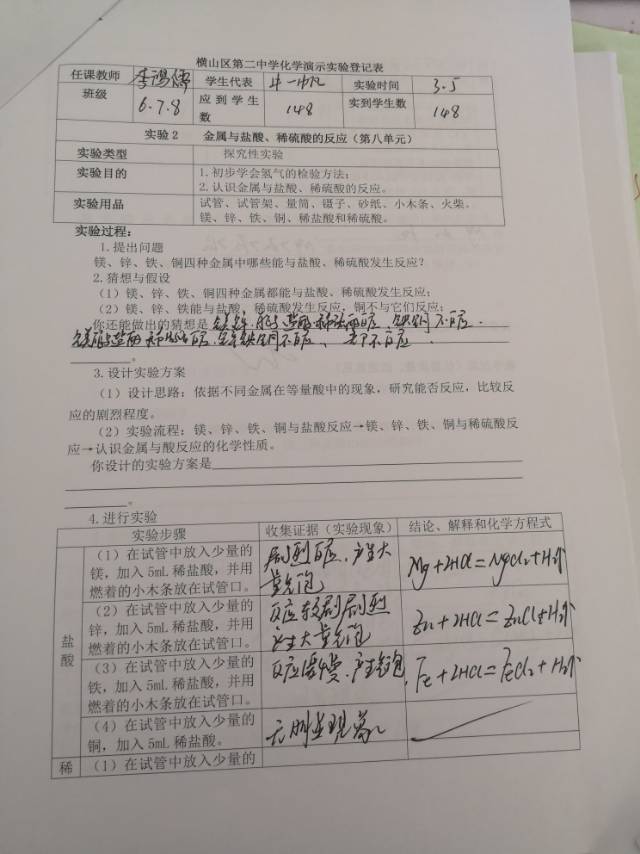 横山区第二中学化学演示实验登记表
任课教师 学生代表 实验时间 3.5
班级 6.7.8 应到学生数 148 实到学生数 148
实验2 金属与盐酸、稀硫酸的反应（第八单元）
实验类型 探究性实验
实验目的 1.初步学会氢气的检验方法；
2.认识金属与盐酸、稀硫酸的反应。
实验用品 试管、试管架、量筒、镊子、砂纸、小木条、火柴、
镁、锌、铁、铜、稀盐酸和稀硫酸。
实验过程：
1.提出问题
镁、锌、铁、铜四种金属中哪些能与盐酸、稀硫酸发生反应？
2.猜想与假设
（1）镁、锌、铁、铜四种金属都能与盐酸、稀硫酸发生反应；
（2）镁、锌、铁能与盐酸、稀硫酸发生反应，铜不与它们反应；
你还能做出的猜想是
。
3.设计实验方案
（1）设计思路：依据不同金属在等量酸中的现象，研究能否反应，比较反
应的剧烈程度。
（2）实验流程：镁、锌、铁、铜与盐酸反应→镁、锌、铁、铜与稀硫酸反
应→认识金属与酸反应的化学性质。
你设计的实验方案是
。
4.进行实验
实验步骤 收集证据（实验现象） 结论、解释和化学方程式
盐酸
（1）在试管中放入少量的 剧烈反应，产生大
镁，加入5mL稀盐酸，并用 量气泡 Mg+2HCl=MgCl2+H2↑
燃着的小木条放在试管口。
（2）在试管中放入少量的 反应较剧烈
锌，加入5mL稀盐酸，并用 产生大量气泡 Zn+2HCl=ZnCl2+H2↑
燃着的小木条放在试管口。
（3）在试管中放入少量的 反应缓慢，产生气泡
铁，加入5mL稀盐酸，并用 Fe+2HCl=FeCl2+H2↑
燃着的小木条放在试管口。
（4）在试管中放入少量的 无明显现象
铜，加入5mL稀盐酸。
稀 （1）在试管中放入少量的